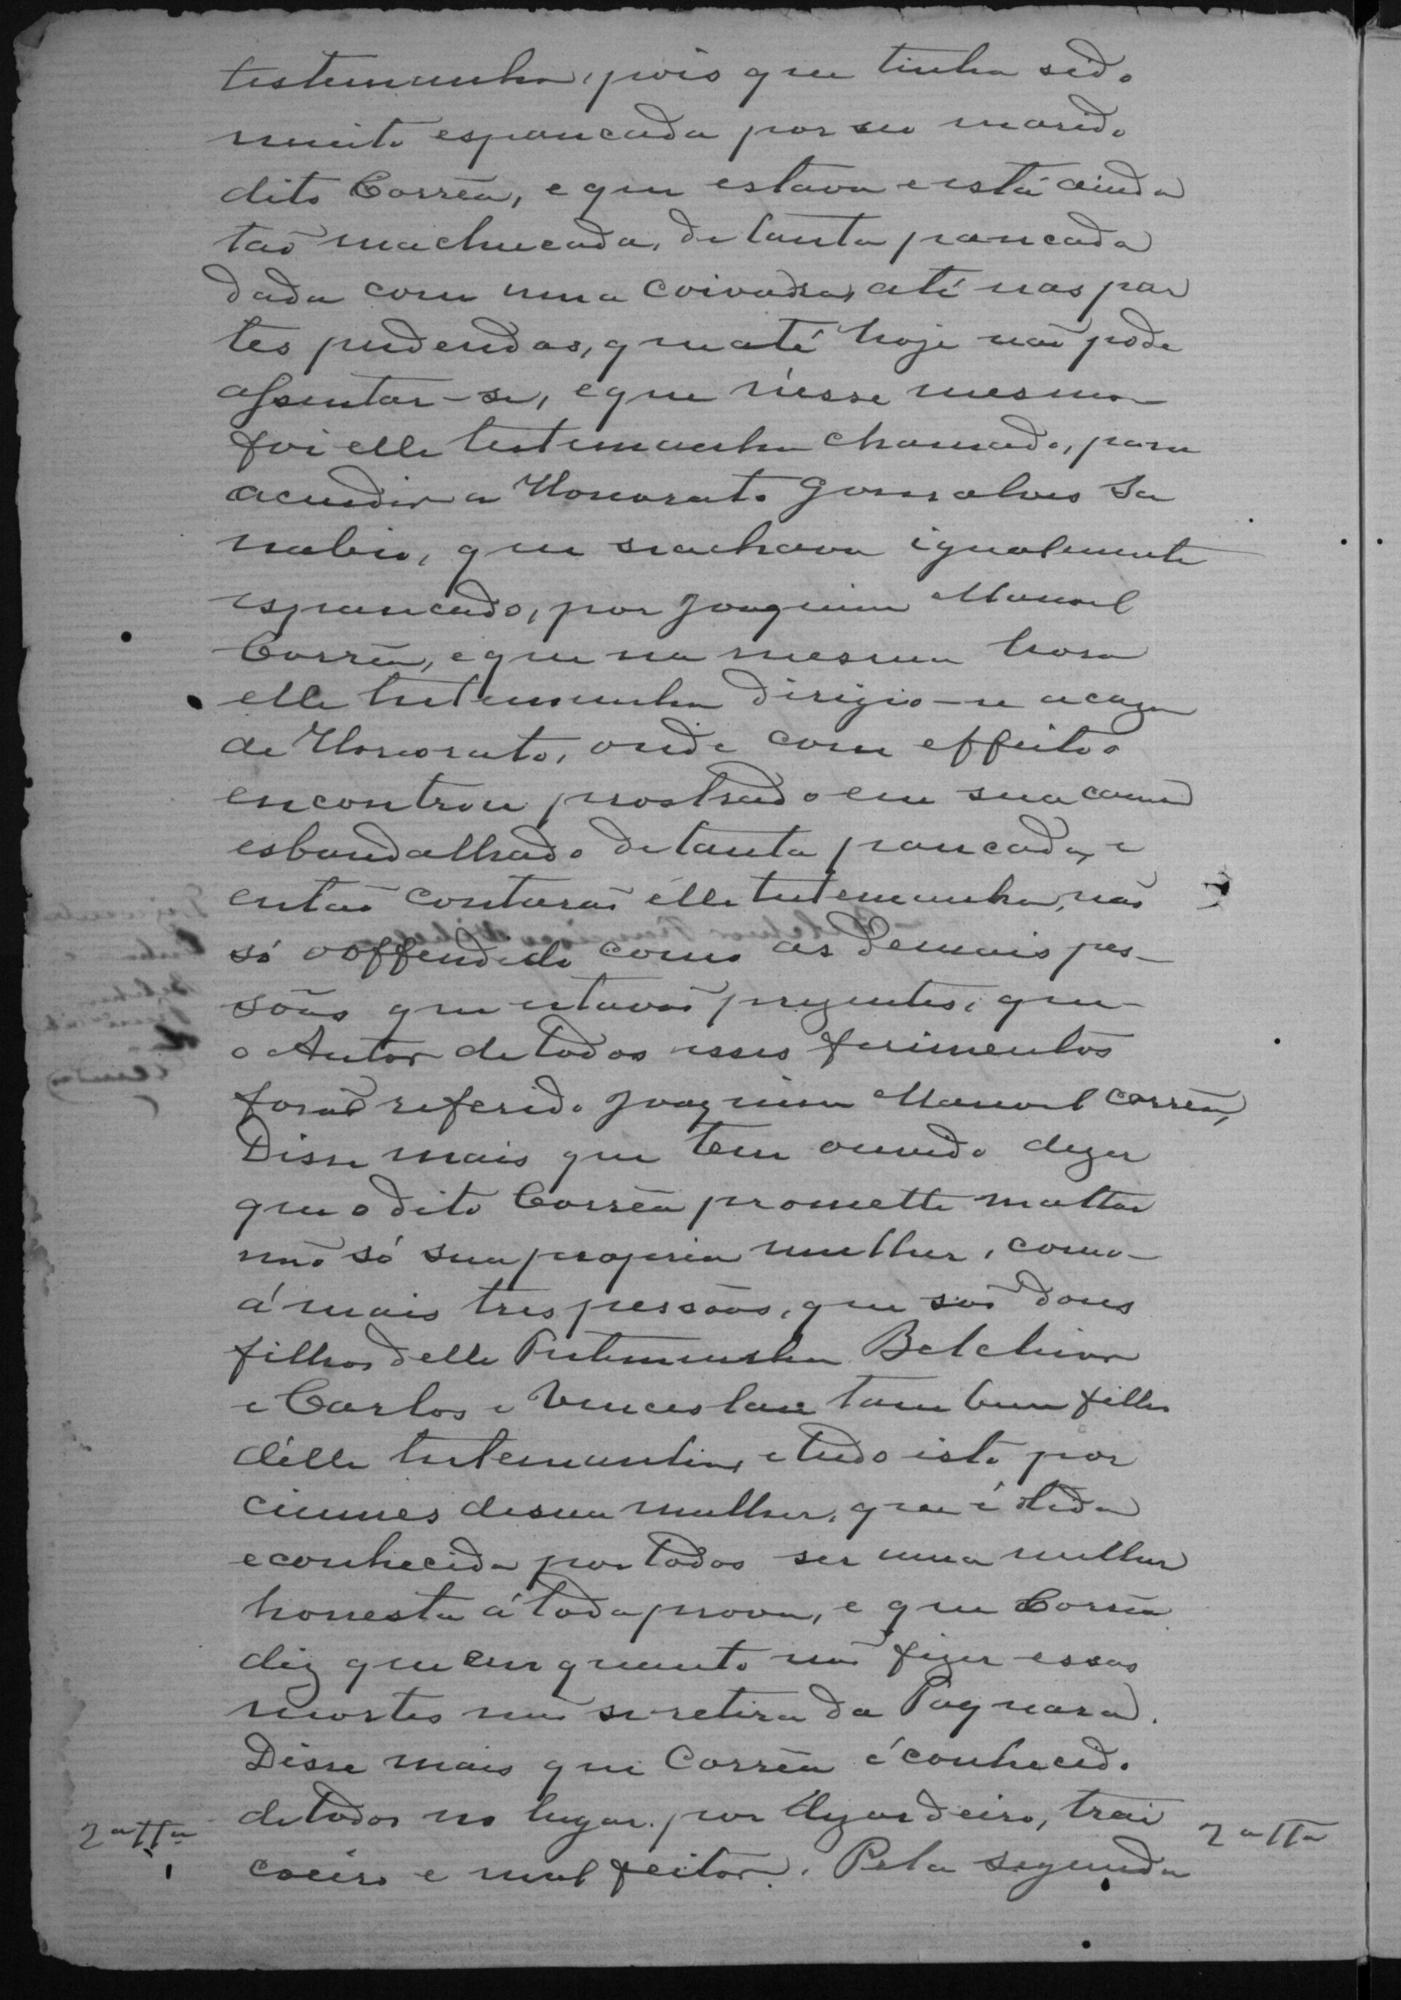 testemunha, pois que tinha sido
muito espancada por seu marido
dito Corrêa, e que estava e está ainda
tão machucada, de tanta pancada
dada com uma coivara, até nas par
tes pudendas, que até hoje não pode
assentar-se, e que n'esse mesmo
foi elle testemunha chamado, para
acudir a Honorato Gonsalves Sa
nabio, que se achava igualmente
espancado, por Joaquim Manoel
Corrêa, e que na mesma hora
elle testemunha dirigio-se a caza
de Honorato, onde com effeito o
encontrou prostrado em sua cama
esbandalhado de tanta pancada, e
então contarão élle testemunha, não
só o offendido como as demais pes-
sôas que estavão prezentes, que
o Autor de todos esses ferimentos
fora o referido Joaquim Manoel Corrêa,
Disse mais que tem ouvido dizer
que o dito Corrêa promette mattar
não só sua propria mulher, como
á mais tres pessôas, que são dous
filhos delle Testemunha Belchior
e Carlos e Venceslau tambem filho
délle testemunha, e tudo isto por
ciumes de sua mulher, que é tida
e conhecida por todos ser uma mulher
honesta á toda prova, e que Corrêa
diz que em quanto não fizer essas
mortes não se retira da Paguara.
Disse mais que Corrêa é conhecido
de todos no lugar por dezordeiro, trai
coeiro e mal feitor. Pela segunda
2ª Tta
2ª Tta